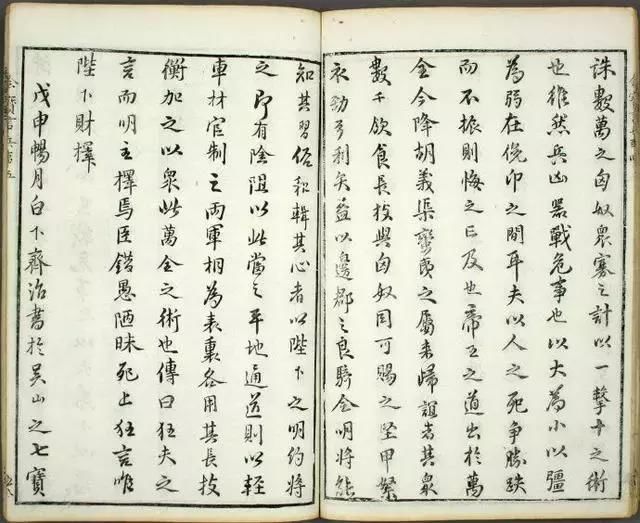 誅數萬之匈奴眾寡之計以一擊十之術
也雖然兵凶器戰危事也以大為小以彊
為弱在俛卬之間耳夫以人之死爭勝跌
而不振則悔之亡及也帝王之道出於萬
全今降胡義渠蠻夷之屬来歸誼者其眾
數千飲食長技與匈奴同可賜之堅甲絮
衣勁弓利矢益以邊郡之良騎令明將能
知其習俗和輯其心者以陛下之明約將
之即有險阻以此當之平地通道則以輕
車材官制之兩軍相為表裏各用其長技
衡加之以眾此萬全之術也傳曰狂夫之
言而明主擇焉臣錯愚陋昧死上狂言唯
陛下財擇
戊申暢月白下齊治書於吳山之七寶